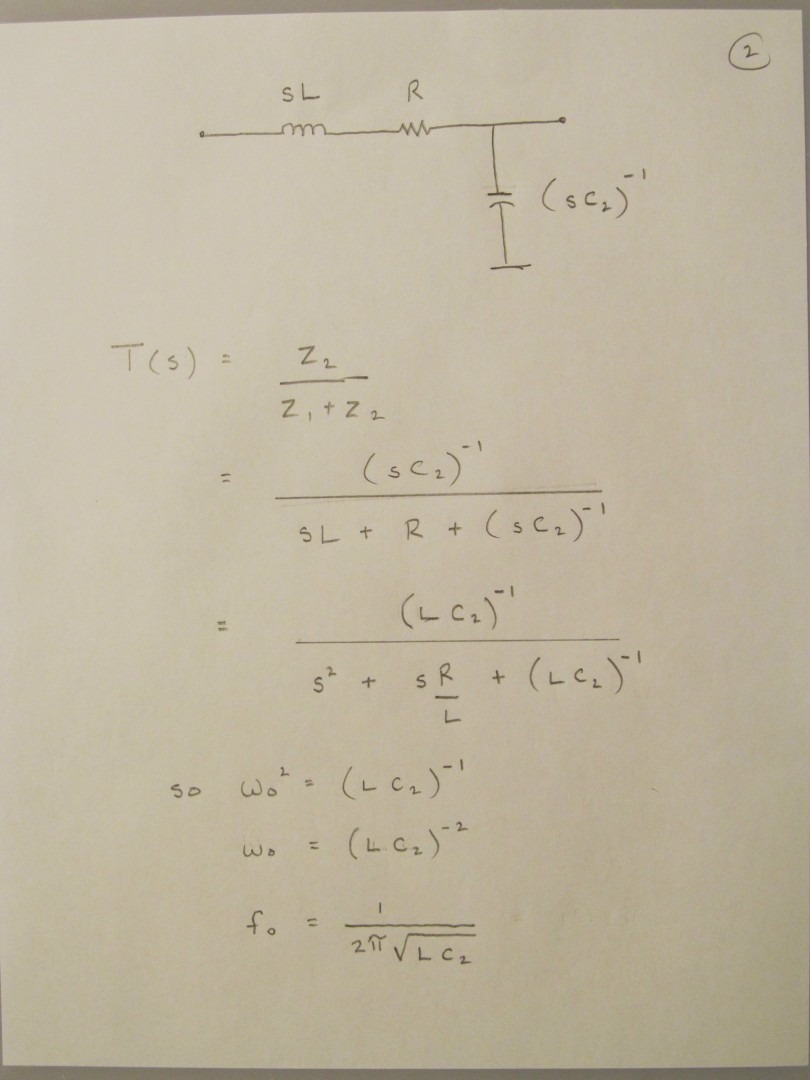 2
sL R
(sC₂)⁻¹
T(s) = Z₂ / (Z₁ + Z₂)
= (sC₂)⁻¹ / (sL + R + (sC₂)⁻¹)
= (LC₂)⁻¹ / (s² + s R/L + (LC₂)⁻¹)
so ω₀² = (LC₂)⁻¹
ω₀ = (L.C₂)⁻²
f₀ = 1 / (2π√(LC₂))